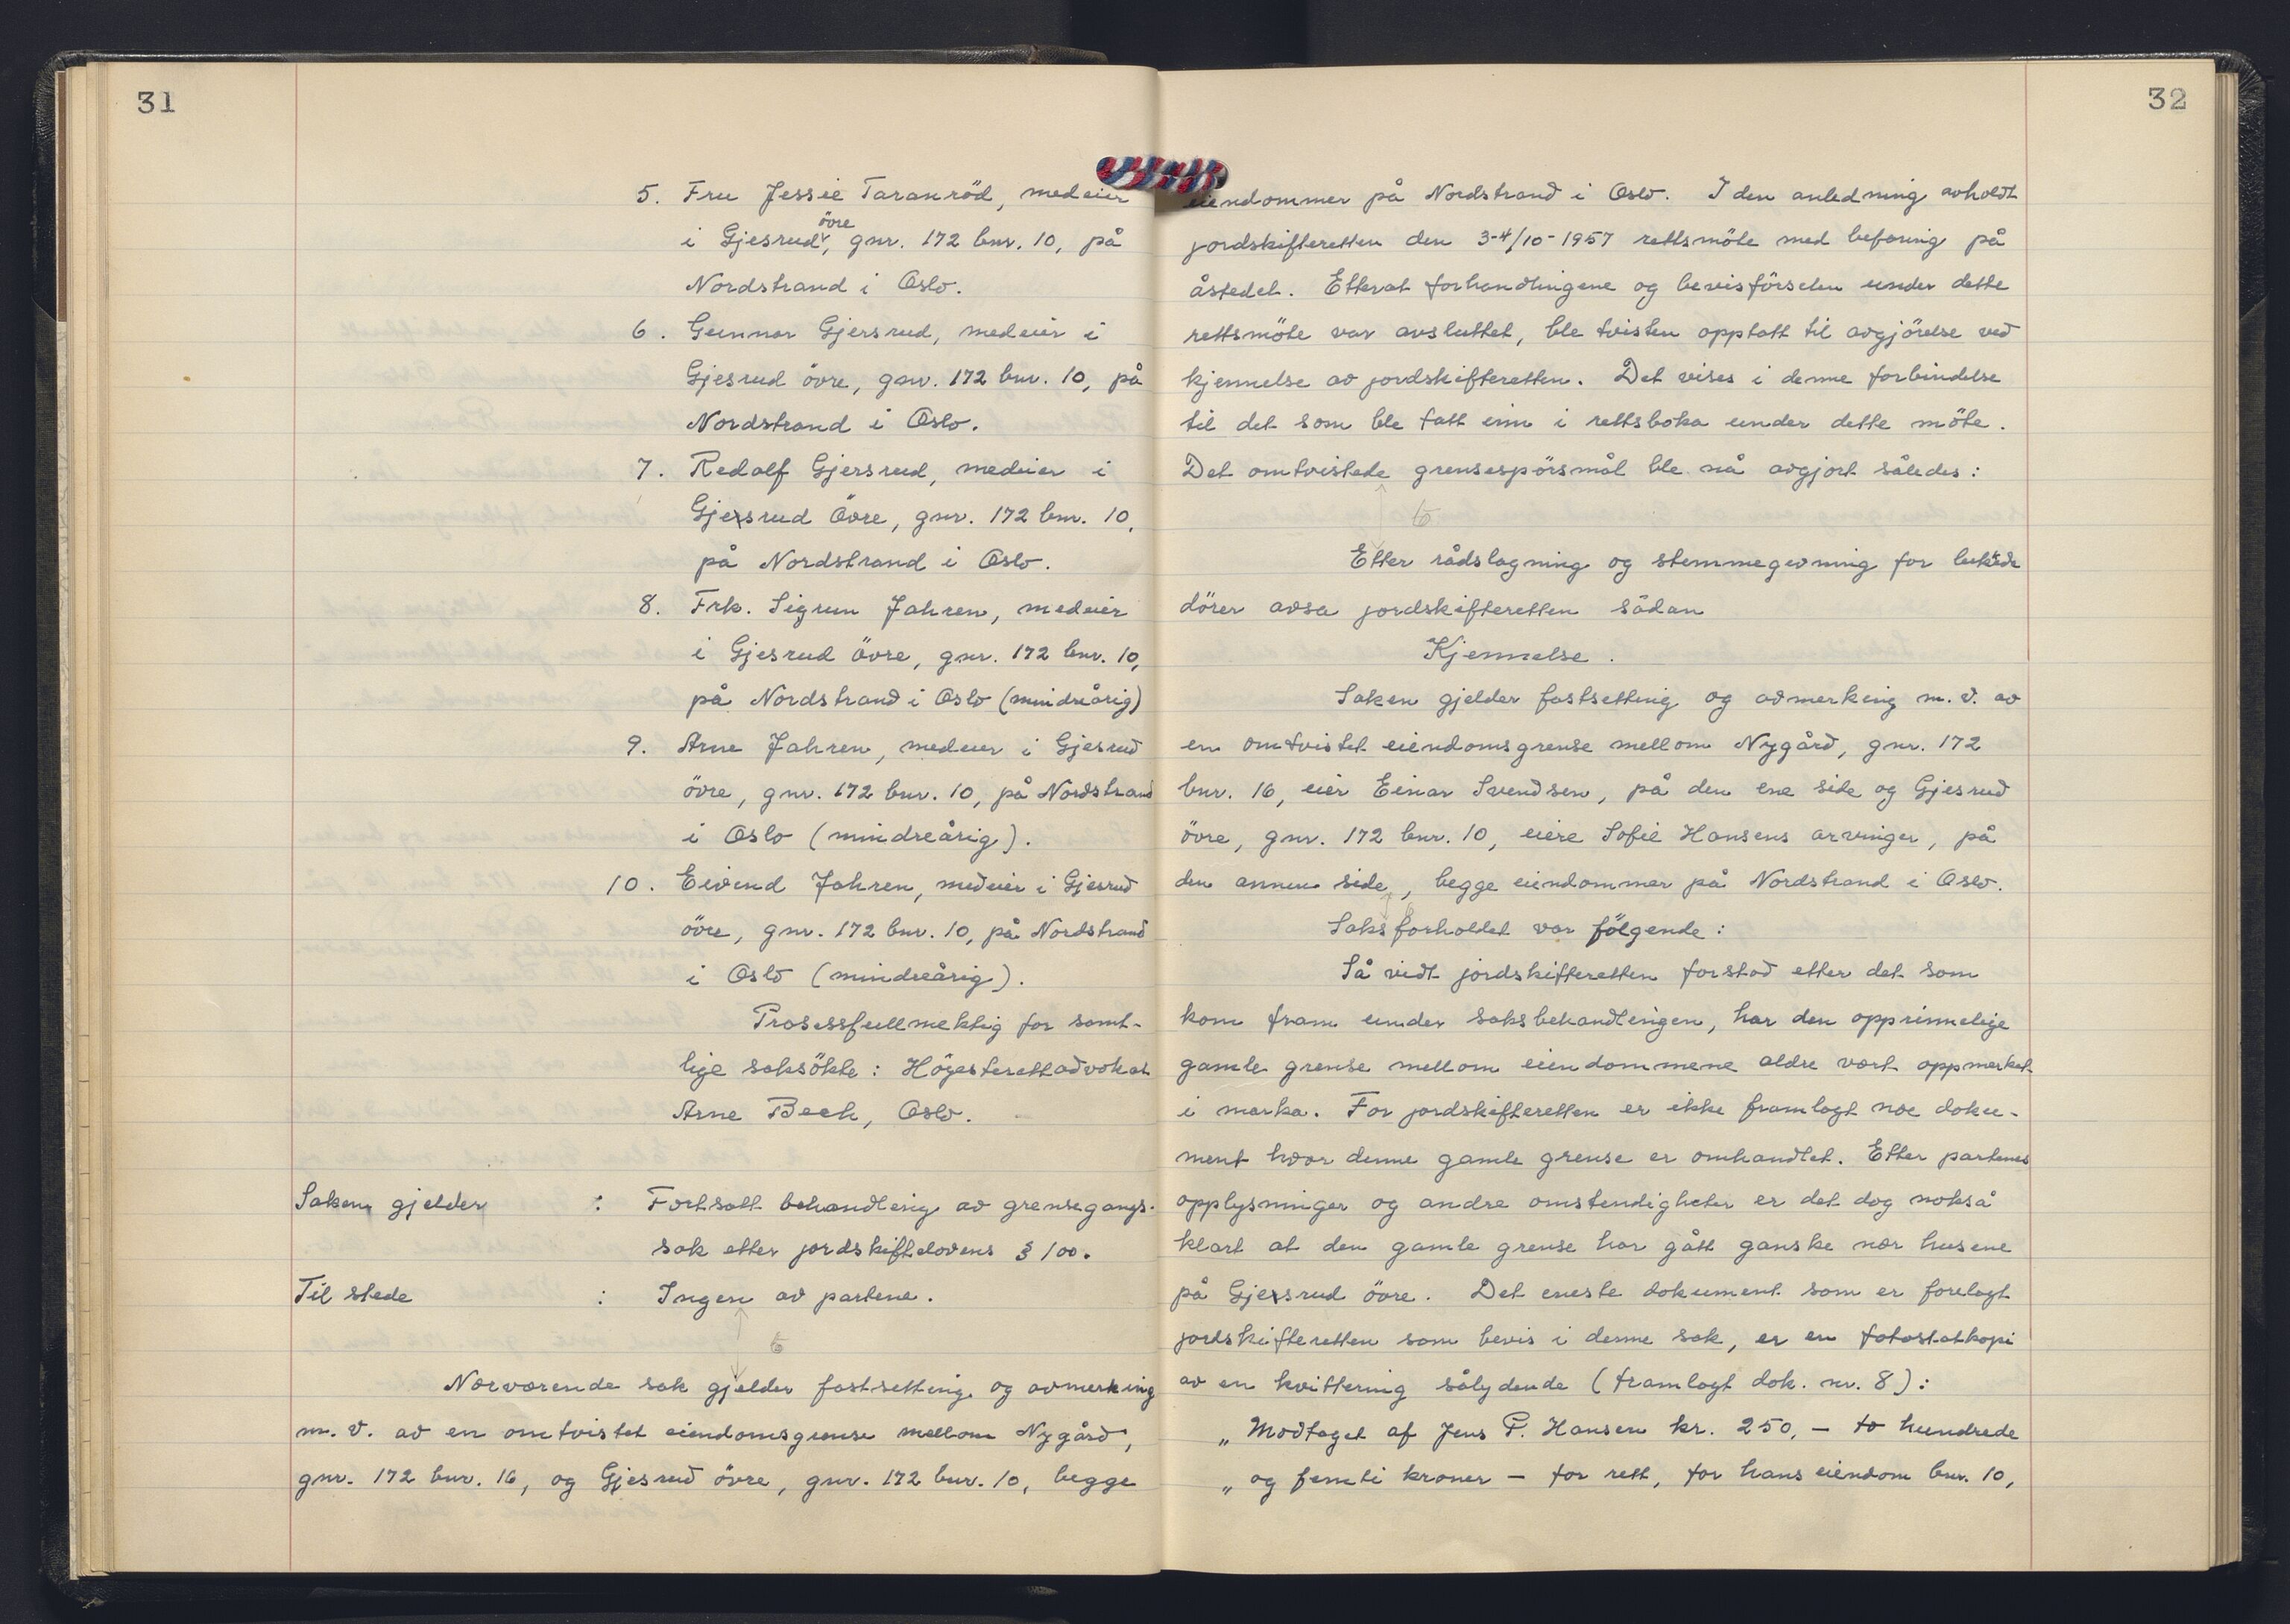 31
5. Fru Jessie Taranröd, medeier
i Gjesrud övre, gnr. 172 bnr. 10, på
Nordstrand i Oslo.
6. Gunnar Gjersrud, medeier i
Gjesrud övre, gnr. 172 bnr. 10, på
Nordstrand i Oslo.
7. Redolf Gjersrud, medeier i
Gjersrud Övre, gnr. 172 bnr. 10,
på Nordstrand i Oslo.
8. Frk. Sigrun Jahren, medeier
i Gjesrud Övre, gnr. 172 bnr. 10,
på Nordstrand i Oslo (mindreårig)
9. Arne Jahren, medeier i Gjesrud
övre, gnr. 172 bnr. 10, på Nordstrand
i Oslo (mindreårig).
10. Eivind Jahren, medeier i Gjesrud
övre, gnr. 172 bnr. 10, på Nordstrand
i Oslo (mindreårig).
Prosessfullmektig for samt-
lige saksökte: Högesterettadvokat
Arne Bech, Oslo.
Saken gjelder : Fortsatt behandling av grensegangs-
sak etter jordskiftelovens § 100.
Til stede : Ingen av partene.
Nærværende sak gjelder fastsetting og avmerking
m. v. av en omtvistet eiendomsgrense mellom Nygård,
gnr. 172 bnr. 16, og Gjesrud övre, gnr. 172 bnr. 10, begge
32
eiendommer på Nordstrand i Oslo. I den anledning avholdt
jordskifteretten den 3-4/10-1957 rettsmöte med befaring på
åstedet. Etterat forhandlingene og bevisförselen under dette
rettsmöte var avsluttet, ble tvisten opptatt til avgjörelse ved
kjennelse av jordskifteretten. Det vises i denne forbindelse
til det som ble tatt inn i rettsboka under dette möte.
Det omtvistede grensespörsmål ble nå avgjort således:
Etter rådslagning og stemmegivning for lukkede
dörer avsa jordskifteretten sådan
Kjennelse.
Saken gjelder fastsetting og avmerking m. v. av
en omtvistet eiendomsgrense mellom Nygård, gnr. 172
bnr. 16, eier Einar Svendsen, på den ene side og Gjesrud
övre, gnr. 172 bnr. 10, eiere Sofie Hansens arvinger, på
den annen side, begge eiendommer på Nordstrand i Oslo.
Saksforholdet var fölgende:
Så vidt jordskifteretten forstod etter det som
kom fram under saksbehandlingen, har den opprinnelige
gamle grense mellom eiendommene aldri vært oppmerket
i marka. For jordskifteretten er ikke framlagt noe doku-
ment hvor denne gamle grense er omhandlet. Etter partenes
opplysninger og andre omstendigheter er det dog nokså
klart at den gamle grense har gått ganske nær husene
på Gjersrud övre. Det eneste dokument som er forelagt
jordskifteretten som bevis i denne sak, er en fotostatkopi
av en kvittering sålydende (framlagt dok. nr. 8):
„ Modtaget af Jens P. Hansen kr. 250,- to hundrede
„ og femti kroner - for rett, for hans eiendom bnr. 10,